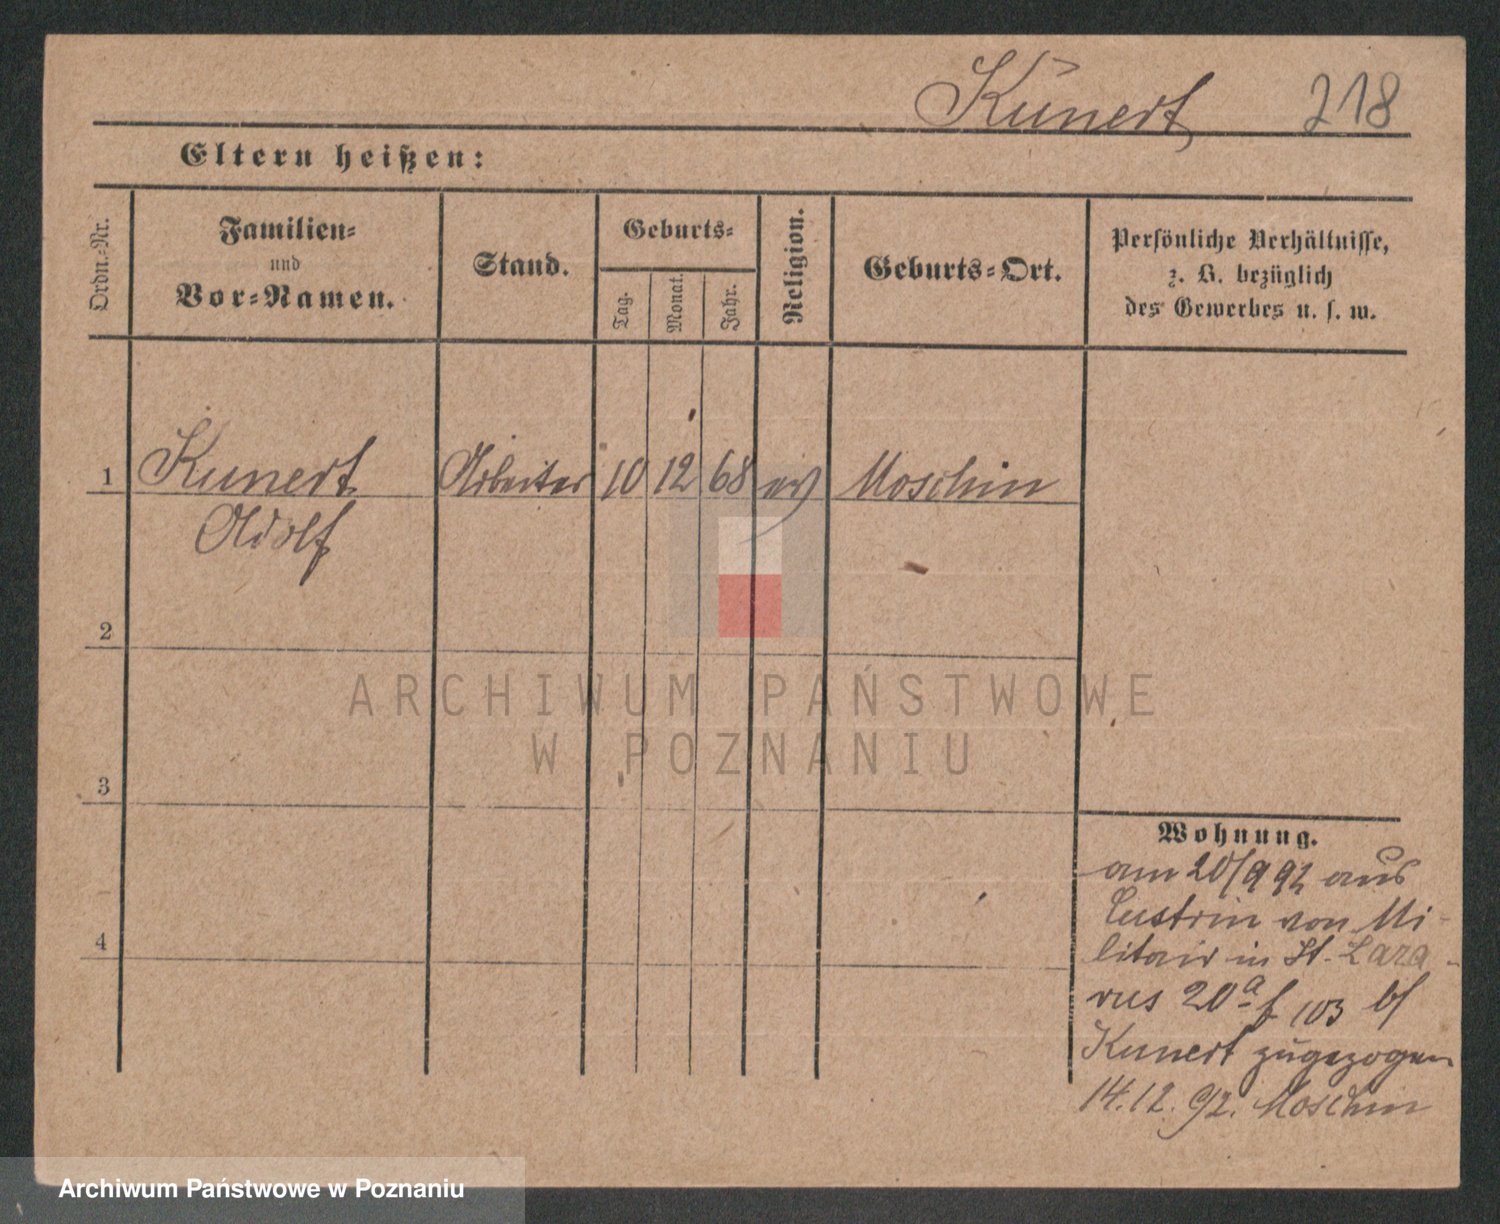 Kunert 218
Eltern heißen:
Ordn.-Nr. Familien- und Vor-Namen. Stand. Geburts- Tag. Monat. Jahr. Religion. Geburts-Ort. Persönliche Verhältnisse, z. B. bezüglich des Gewerbes u. s. w.
1 Kunert Arbeiter 10 12 68 ev Moschin
Adolf
2
3
4
Wohnung.
am 20/9 92 aus
Custrin von Mi-
litair in St. Laza-
rus 20a
103
Kunert zugezogen
14.12.92. Moschin
ARCHIWUM PAŃSTWOWE
W POZNANIU
Archiwum Państwowe w Poznaniu